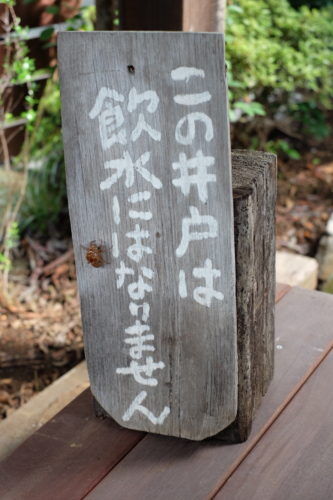 この井戸は
飲水にはなりません